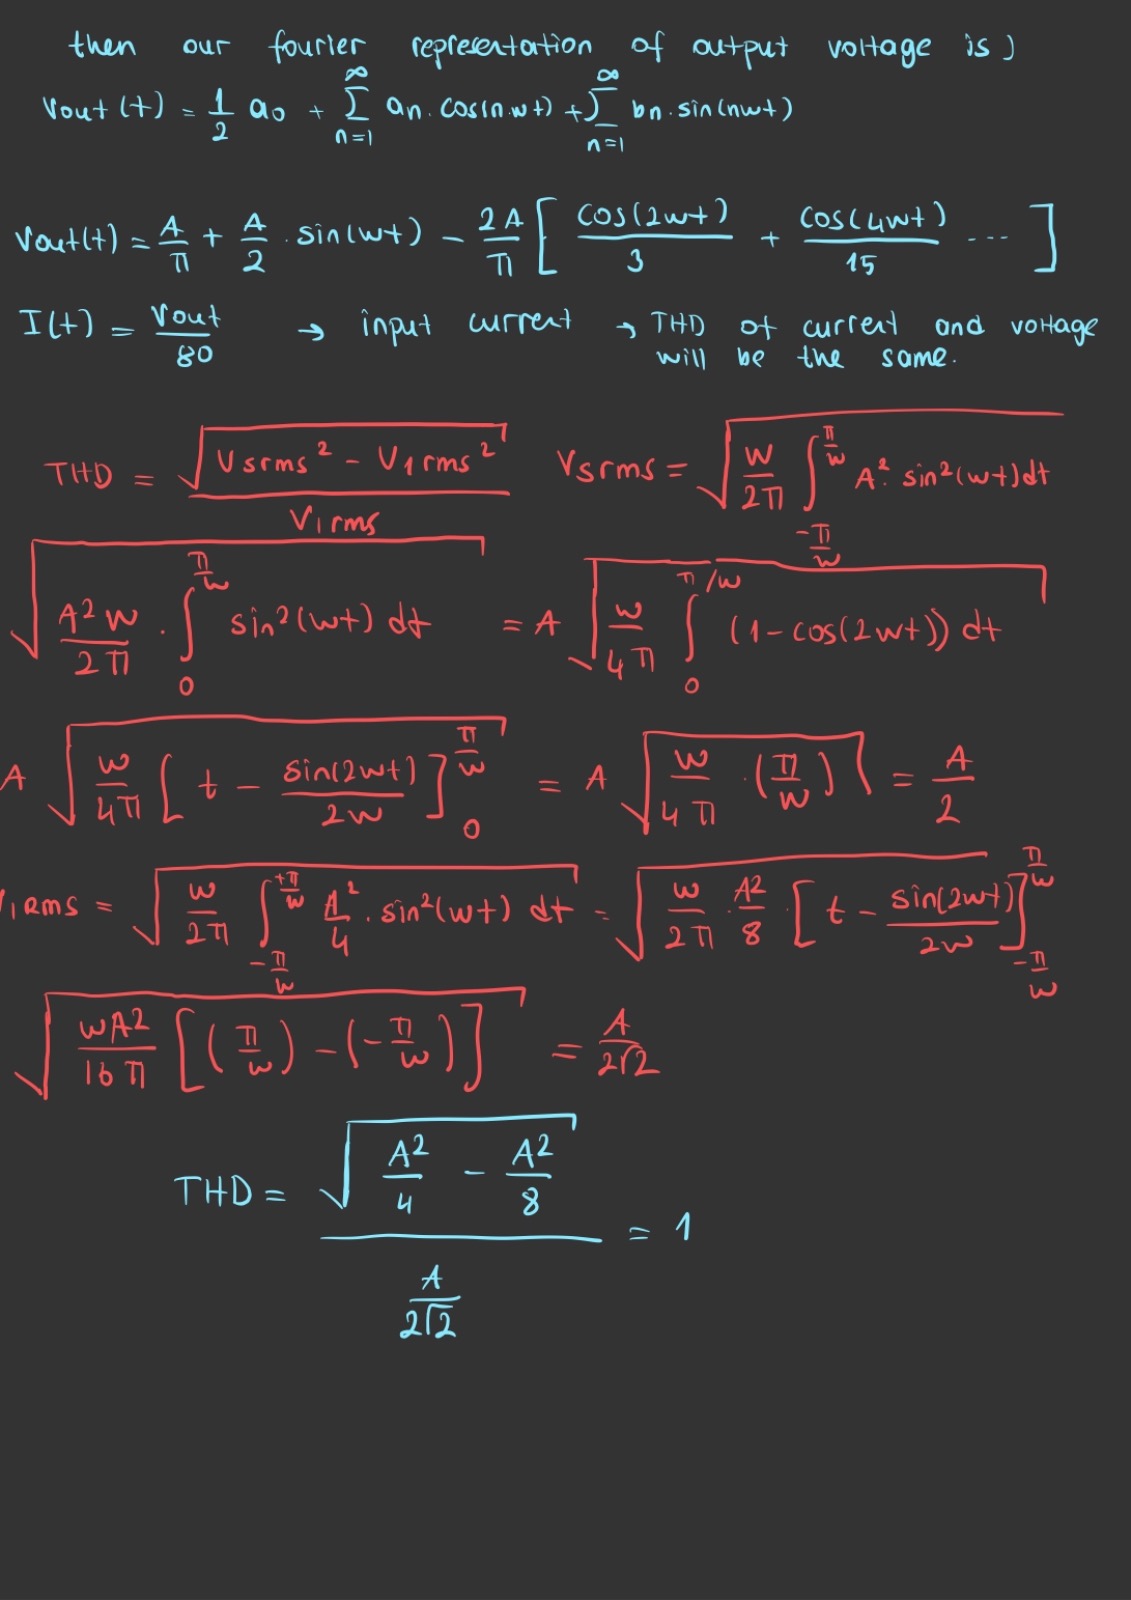 then our fourier representation of output voltage is )
Vout (t) = 1/2 a0 + ∑_{n=1}^{∞} an . cos(n.wt) + ∑_{n=1}^{∞} bn . sin(nwt)
Vout(t) = A/π + A/2 . sin(wt) - 2A/π [ cos(2wt)/3 + cos(4wt)/15 ... ]
I(t) = Vout/80 → input current → THD of current and voltage
will be the same.
THD = √(Vsrms² - V1rms²) / V1rms Vsrms = √( w/2π ∫_{-π/w}^{π/w} A². sin²(wt) dt
√( A²w/2π . ∫_{0}^{π/w} sin²(wt) dt ) = A √( w/4π ∫_{0}^{π/w} (1 - cos(2wt)) dt )
A √( w/4π [ t - sin(2wt)/2w ]_{0}^{π/w} ) = A √( w/4π . (π/w) ) = A/2
V1RMS = √( w/2π ∫_{-π/w}^{+π/w} A²/4 . sin²(wt) dt ) = √( w/2π . A²/8 . [ t - sin(2wt)/2w ]_{-π/w}^{π/w} )
√( wA²/16π [ (π/w) - (-π/w) ] ) = A/2√2
THD = √( A²/4 - A²/8 ) / (A/2√2) = 1